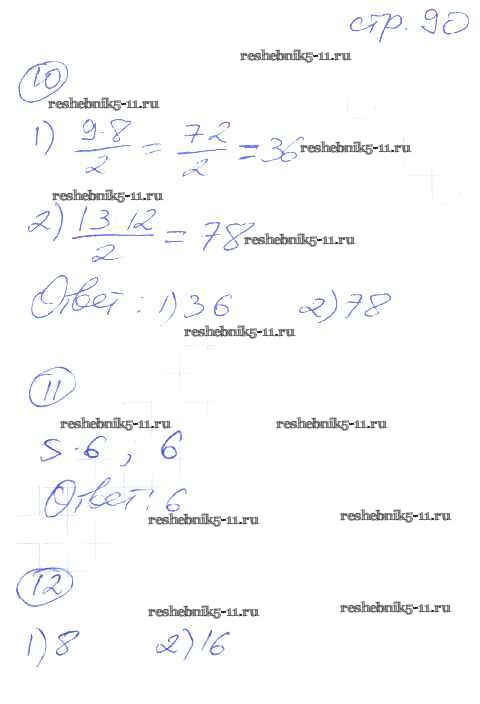 стр. 90
reshebnik5-11.ru
10
reshebnik5-11.ru
1) 9·8/2 = 72/2 = 36 reshebnik5-11.ru
reshebnik5-11.ru
2) 13 12/2 = 78 reshebnik5-11.ru
Ответ: 1) 36 2) 78
reshebnik5-11.ru
11
reshebnik5-11.ru reshebnik5-11.ru
5·6 ; 6
Ответ: 6
reshebnik5-11.ru reshebnik5-11.ru
12
reshebnik5-11.ru reshebnik5-11.ru
1) 8 2) 16